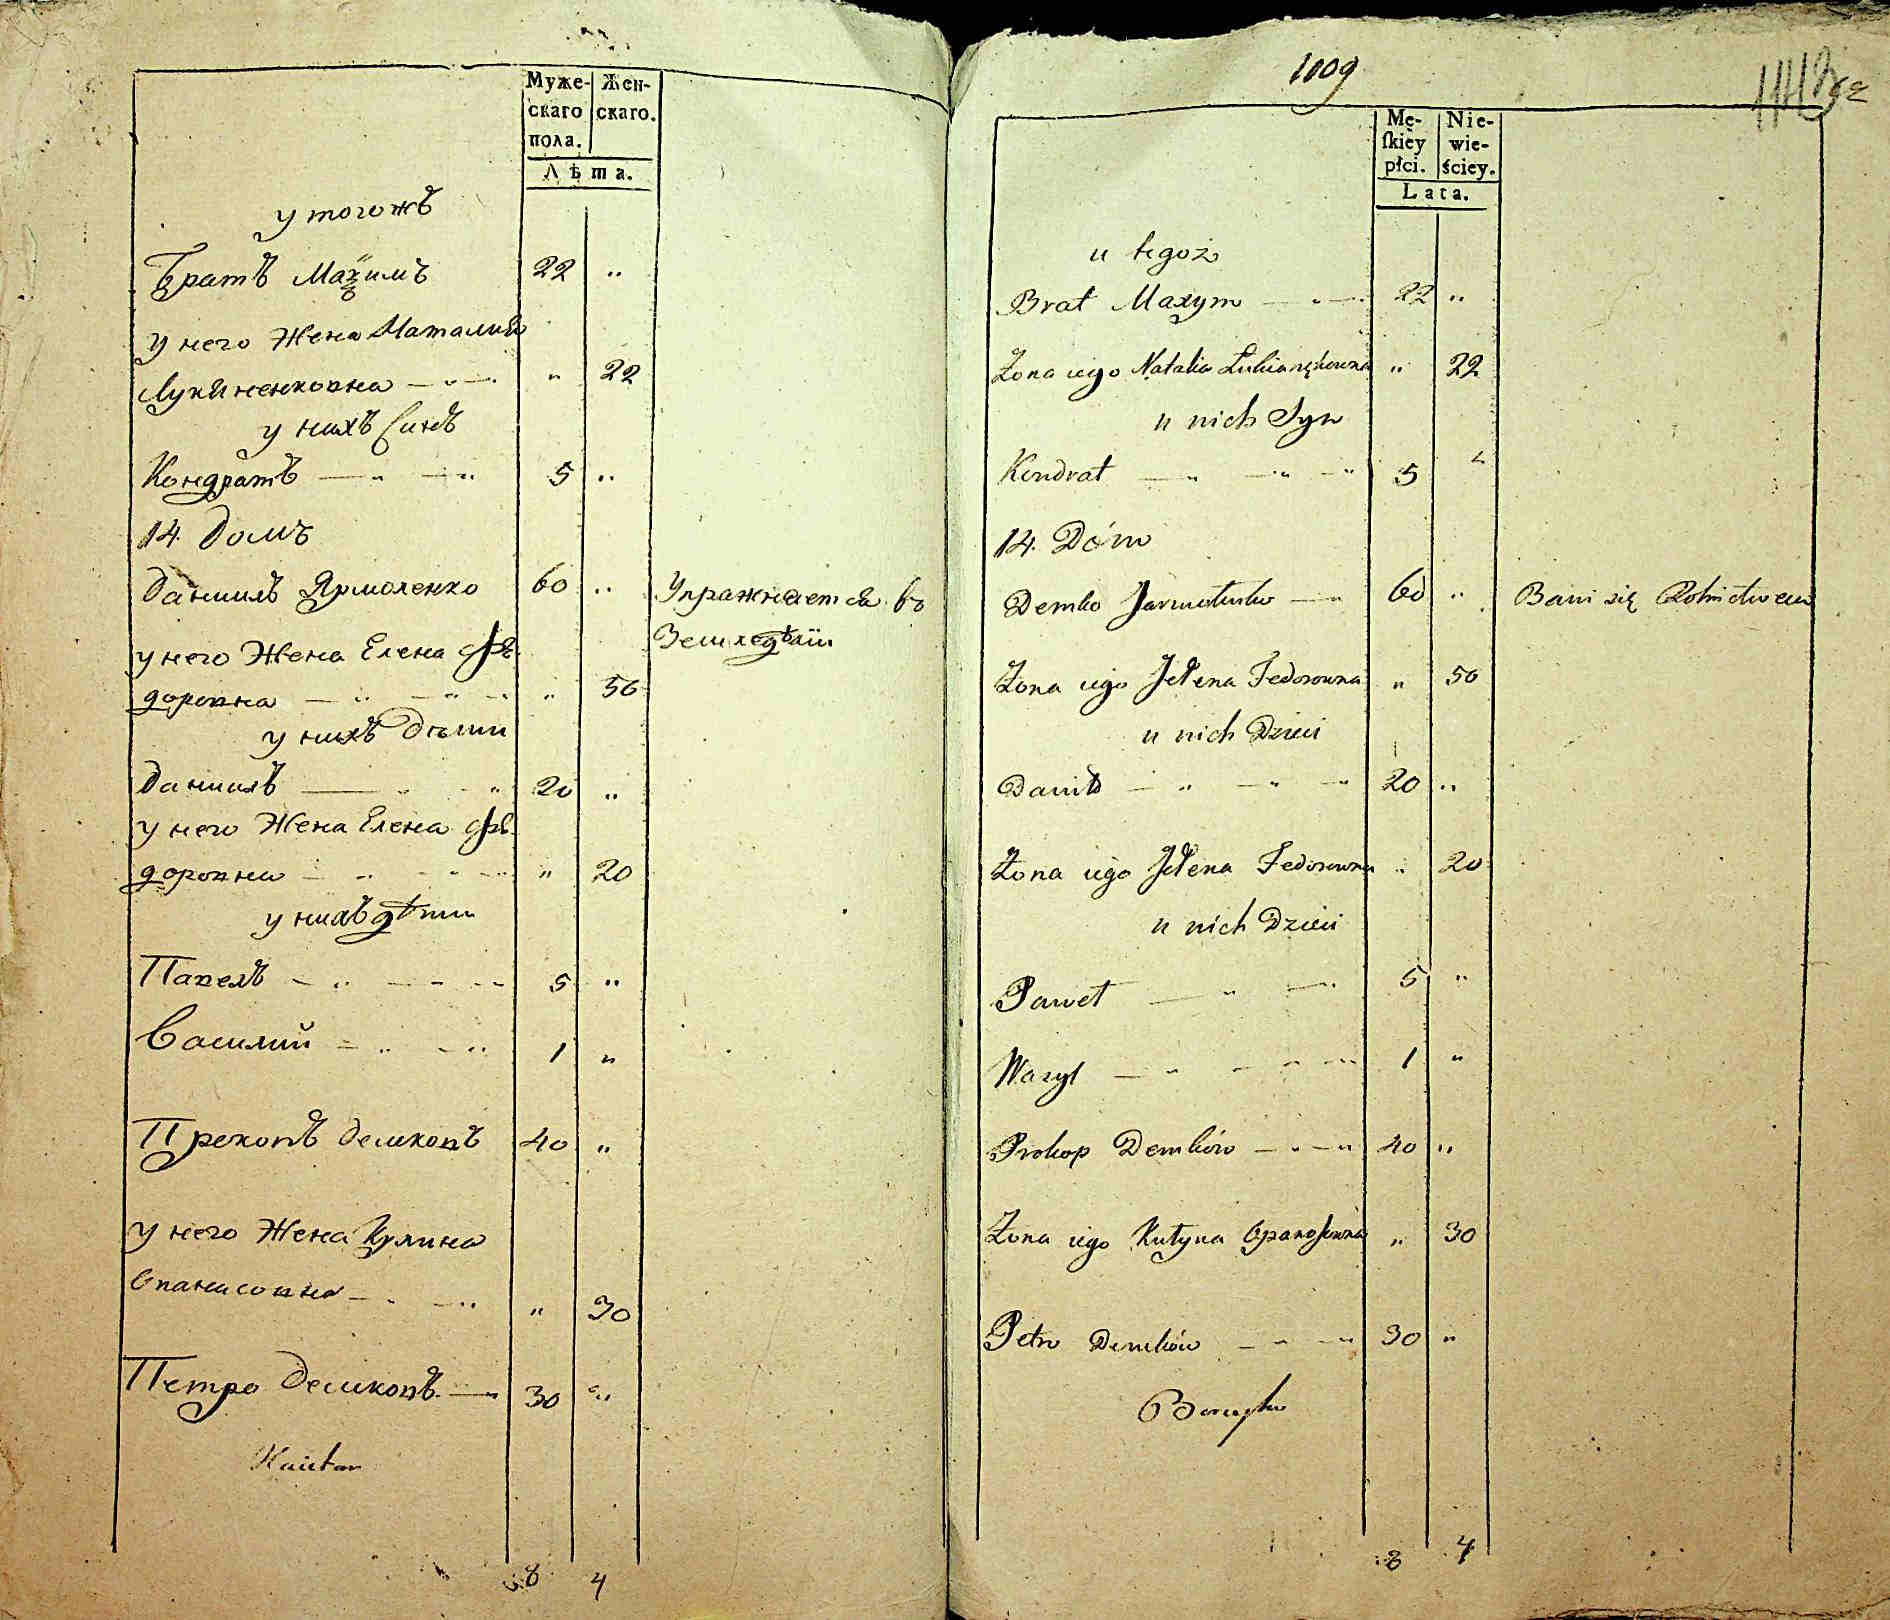 Муже-
скаго
пола.
Жен-
скаго.
Лѣта.
у тогожъ
Братъ Маximъ 22 "
у него Жена Наталия
Лукяненковна — " — " 22
у нихъ Синъ
Кондратъ — " — " 5 "
14. Домъ
Даниилъ Ярмоленко 60 " Упражняется въ
Земледѣлiи
у него Жена Елена Фе-
доровна — " — " 50
у нихъ Дѣти
Даниилъ — " 20 "
у него Жена Елена Фе-
доровна — " — " 20
у нихъ дѣти
Павелъ — " — 5 "
Василий — " — " 1 "
Прокопъ Демковъ 40 "
у него Жена Кулина
Опанасовна — " — " 30
Петро Демковъ — " 30 "
8 4
1109
Mę-
ſkiey
płci.
Nie-
wie-
ściey.
Lata.
u tegoż
Brat Maxym — " — 22 "
Żona iego Natalia " 22
u nich Syn
Kondrat — " — " — " 5 "
14. Dóm
Demko Jarmolenko — " 60 " Bawi się Rolnictwem
Żona iego Jełena Fedorowna " 50
u nich Dzieci
Daniło — " — " — " 20 "
Żona iego Jełena Fedorowna " 20
u nich Dzieci
Paweł — " — " 5 "
Wasyl — " — " 1 "
Prokop Demków — " — " 40 "
Żona iego Kułyna Opanasowna " 30
Petro Demków — " — " 30 "
8 4